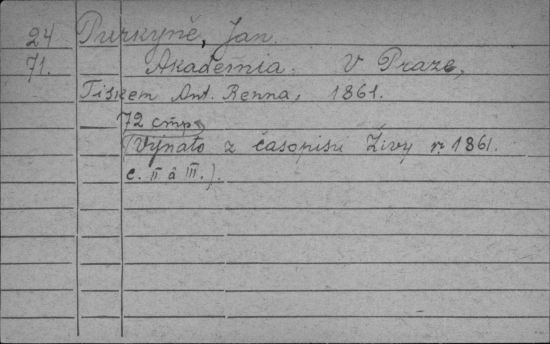 24 Purkyně, Jan
71. Akademia. V Praze,
Tiskem Ant. Renna, 1861.
72 str.
(Vyňato z časopisu Živy r. 1861.
č. II a III.).